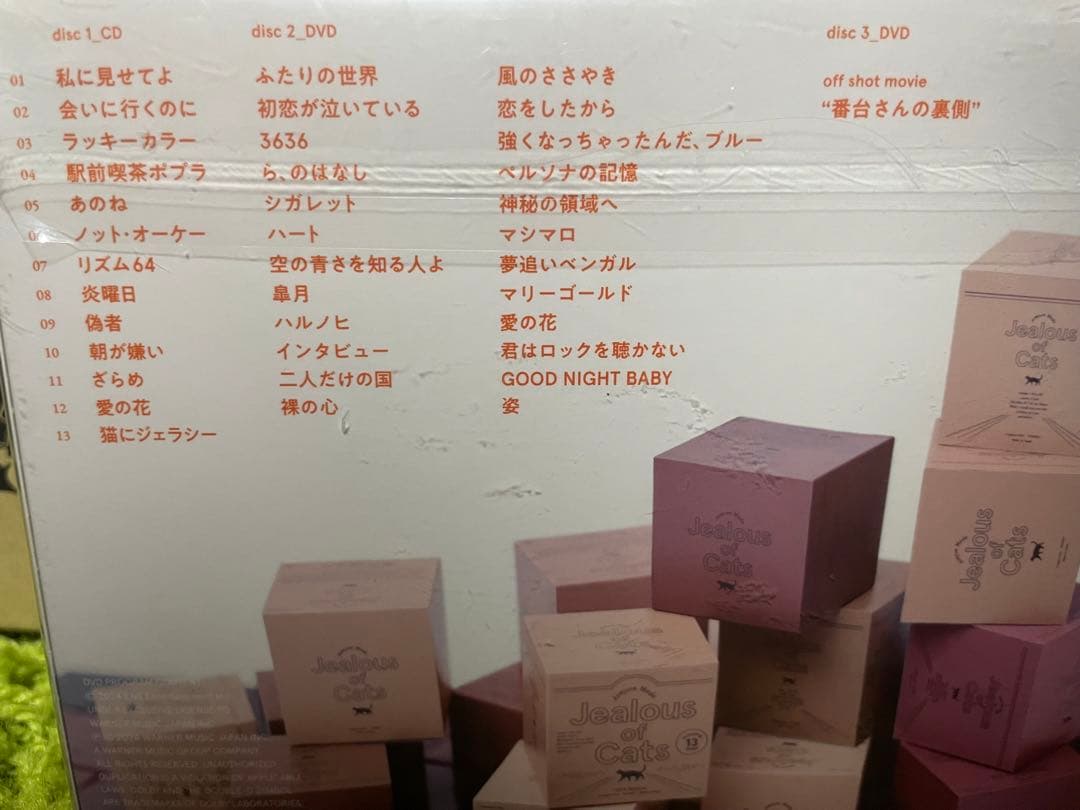 disc 1_CD
01 私に見せてよ
02 会いに行くのに
03 ラッキーカラー
04 駅前喫茶ポプラ
05 あのね
06 ノット・オーケー
07 リズム64
08 炎曜日
09 偽者
10 朝が嫌い
11 ざらめ
12 愛の花
13 猫にジェラシー
disc 2_DVD
ふたりの世界
初恋が泣いている
3636
ら、のはなし
シガレット
ハート
空の青さを知る人よ
皐月
ハルノヒ
インタビュー
二人だけの国
裸の心
風のささやき
恋をしたから
強くなっちゃったんだ、ブルー
ペルソナの記憶
神秘の領域へ
マシマロ
夢追いベンガル
マリーゴールド
愛の花
君はロックを聴かない
GOOD NIGHT BABY
姿
disc 3_DVD
off shot movie
“番台さんの裏側”
Jealous
of
Cats
Jealous
of
Cats
Jealous
of
Cats
Jealous
of
Cats
Jealous
of
Cats
13
A WARNER MUSIC GROUP COMPANY.
ALL RIGHTS RESERVED. UNAUTHORIZED
DUPLICATION IS A VIOLATION OF APPLICABLE
LAWS. DOLBY AND THE DOUBLE-D SYMBOL
ARE TRADEMARKS OF DOLBY LABORATORIES.